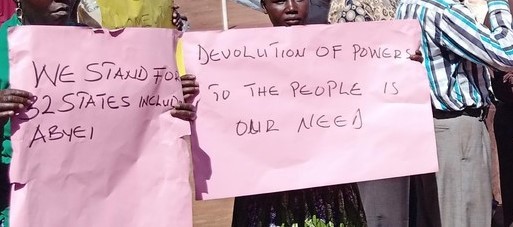 WE STAND FOR
32 STATES INCLUD
ABYEI
DEVOLUTION OF POWERS
TO THE PEOPLE IS
OUR NEED